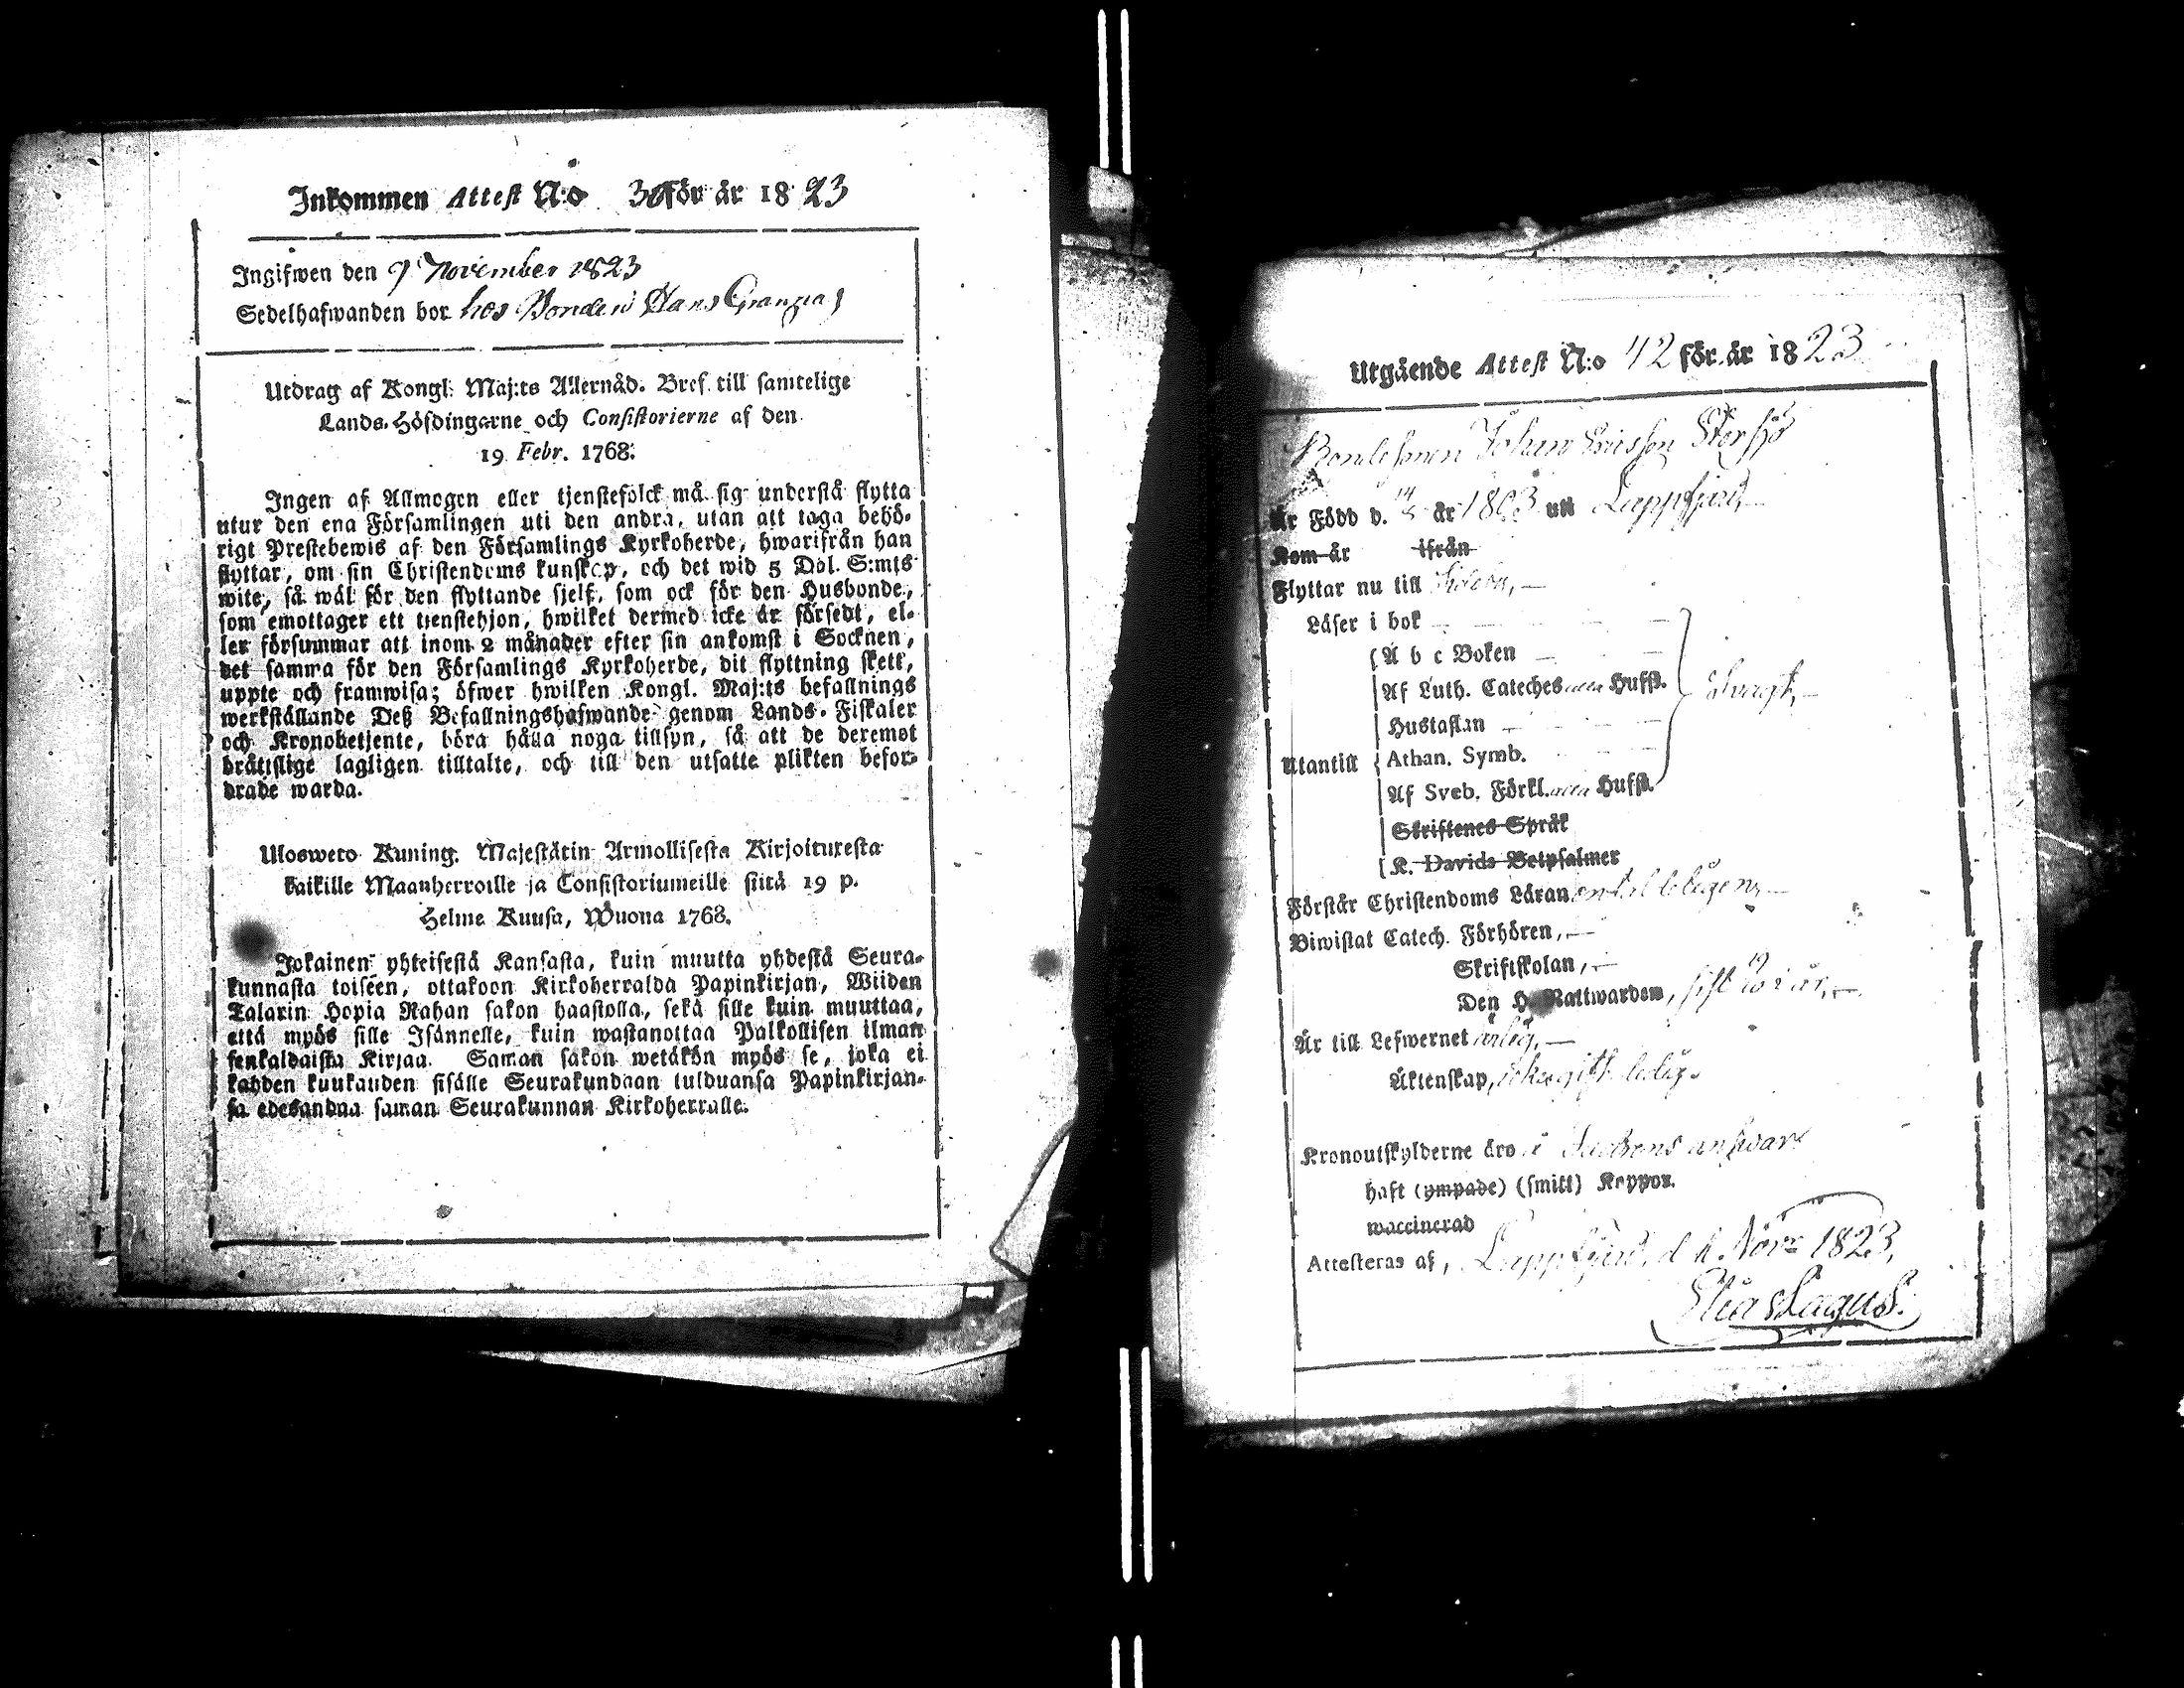 Inkommen Attest N:o 30 för år 1823
Ingifwen den 9 November 1823
Sedelhafwanden bor hos Bonden Hans Granga
Utdrag af Kongl. Maj:ts Allernåd. Bref till samtelige
Lands-Höfdingarne och Consistorierne af den
19 Febr. 1768.
Ingen af Allmogen eller tjenstefolck må sig understå flytta
utur den ena Församlingen uti den andra, utan att taga behö-
rigt Prestebewis af den Församlings Kyrkoherde, hwarifrån han
flyttar, om sin Christendoms kunskap, och det wid 5 Dal. S:mts
wite, så wäl för den flyttande sjelf, som ock för den Husbonde,
som emottager ett tjenstehjon, hwilket dermed icke är försedt, el-
ler försummar att inom 2 månader efter sin ankomst i Socknen,
det samma för den Församlings Kyrkoherde, dit flyttning skett,
uppte och framwisa; öfwer hwilken Kongl. Maj:ts befallnings
werkställande Deß Befallningshafwande genom Lands-Fiskaler
och Kronobetjente, böra hålla noga tillsyn, så att de deremot
bråttslige lagligen tilltalte, och till den utsatte plikten befor-
drade warda.
Ulosweto Kuning. Majestätin Armollisesta Kirjoituxesta
kaikille Maanherroille ja Consistoriumeille siitä 19 p.
Helme Kuusa, Wuona 1768.
Jokainen yhteisestä Kansasta, kuin muutta yhdestä Seura-
kunnasta toiseen, ottakoon Kirkoherralda Papinkirjan, Wiiden
Talarin Hopia Rahan sakon haastolla, sekä sille kuin muuttaa,
että myös sille Isännelle, kuin wastanottaa Palkollisen ilman
senkaldaista Kirjaa. Saman sakon wetäkön myös se, joka ei
kahden kuukauden sisälle Seurakundaan tulduansa Papinkirjan-
sa edesandaa saman Seurakunnan Kirkoherralle.
Utgående Attest N:o 42 för år 1823
Bondesonen Johan Ericsson Storsjö
Är Född d. 14 år 1803 uti Lappfjerd
Kom år ifrån
Flyttar nu till
Läser i bok
A b c Boken
Af Luth. Cateches Hufst.
Hustaflan
Utantill Athan. Symb.
Af Sveb. Förkl. Hufst.
Skriftenes Språk
K. Davids Botpsalmer
Svagt
Förstår Christendoms Läran enkel beligen
Biwistat Catech. Förhören,
Skriftskolan,
Den H. Nattwarden, sist
Är till Lefwernet ärlig,
Äktenskap, icke gift ledig.
Kronoutskylderne äro i answar
haft (ympade) (smitt) Koppor.
waccinerad
Attesteras af, Lappfjerd, d Novr 1823,
Elias Lagus.